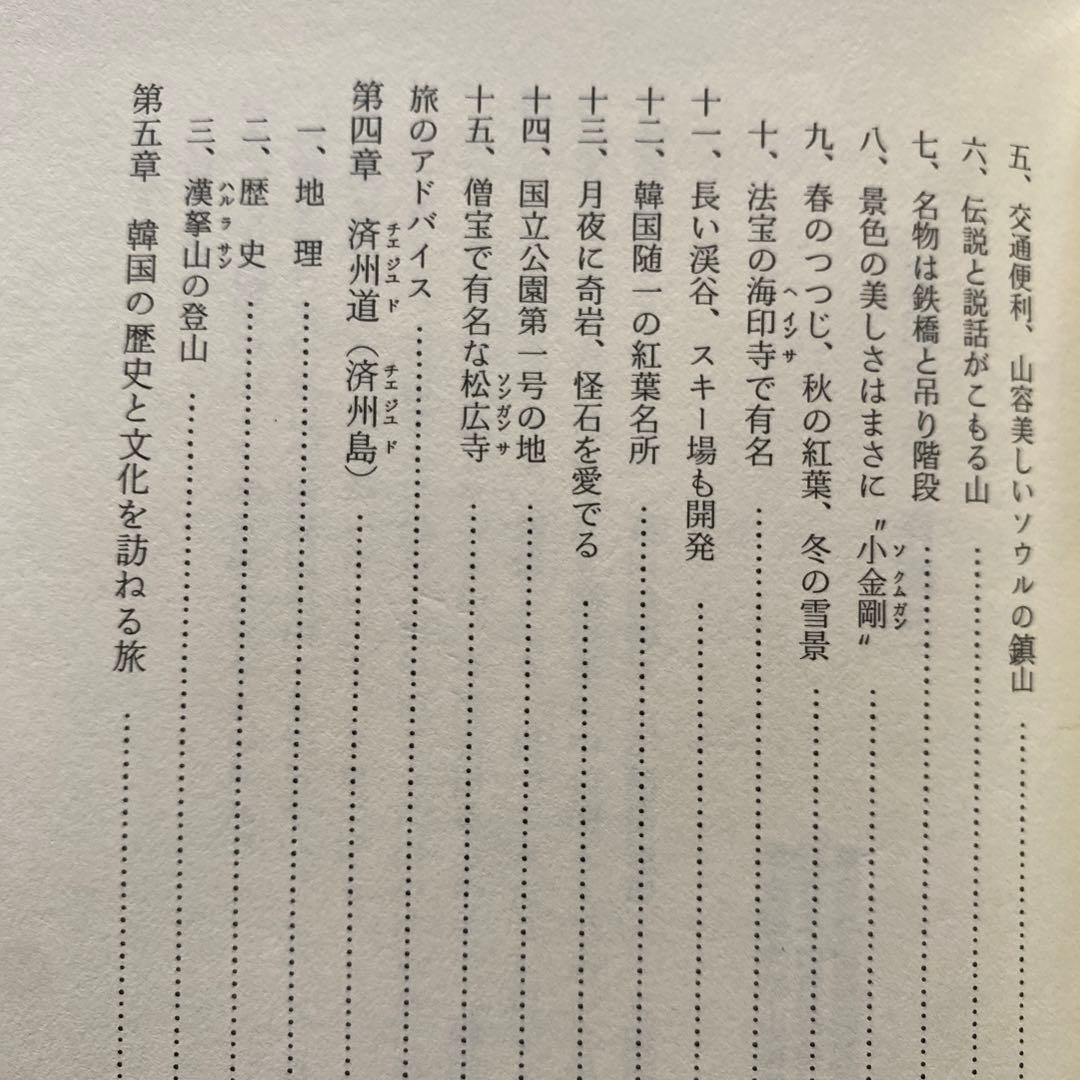 五、交通便利、山容美しいソウルの鎮山
六、伝説と説話がこもる山
七、名物は鉄橋と吊り階段
八、景色の美しさはまさに〝小金剛〟
ソクムガン
九、春のつつじ、秋の紅葉、冬の雪景
十、法宝の海印寺で有名
ヘインサ
十一、長い渓谷、スキー場も開発
十二、韓国随一の紅葉名所
十三、月夜に奇岩、怪石を愛でる
十四、国立公園第一号の地
十五、僧宝で有名な松広寺
ソンガンサ
旅のアドバイス
第四章 済州道（済州島）
チエジユド チエジユド
一、地理
二、歴史
三、漢拏山の登山
ハルラサン
第五章 韓国の歴史と文化を訪ねる旅